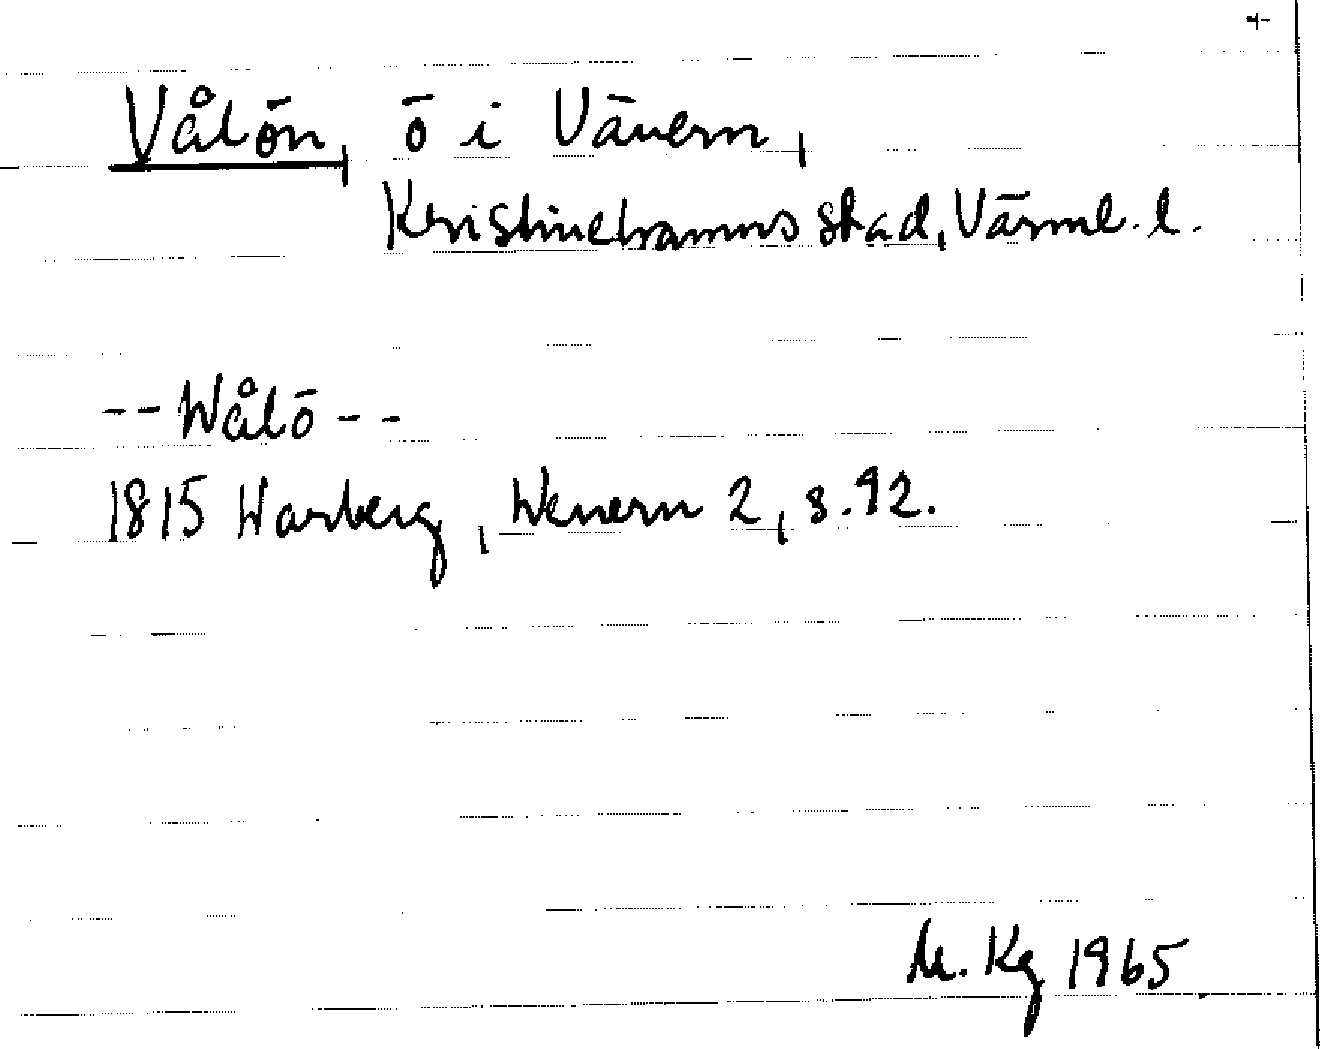 Vålön, ö i Vänern,
Kristinehamns stad, Värml. l.
-- Wålö --
1815 Warberg, Wenern 2, s. 92.
M. Kg 1965